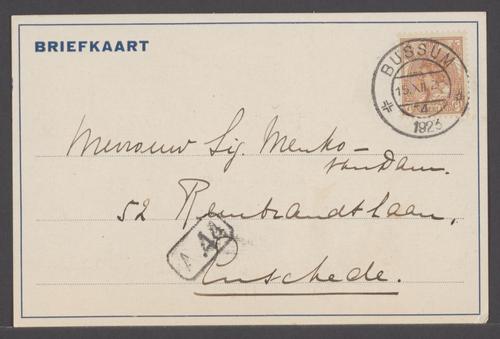 BRIEFKAART
BUSSUM
15.XII.
4
1923
Mevrouw Sig. Menko-
van Dam.
52 Rembrandtlaan,
A A4
Enschede.